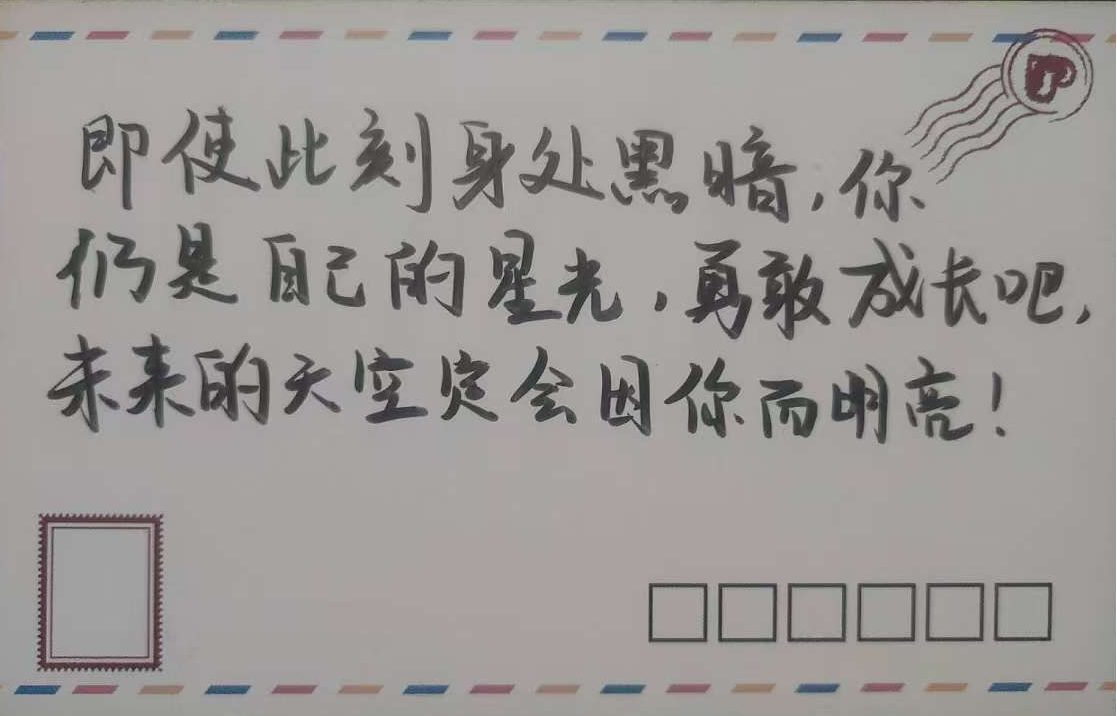 即使此刻身处黑暗,你
仍是自己的星光,勇敢成长吧,
未来的天空定会因你而明亮!